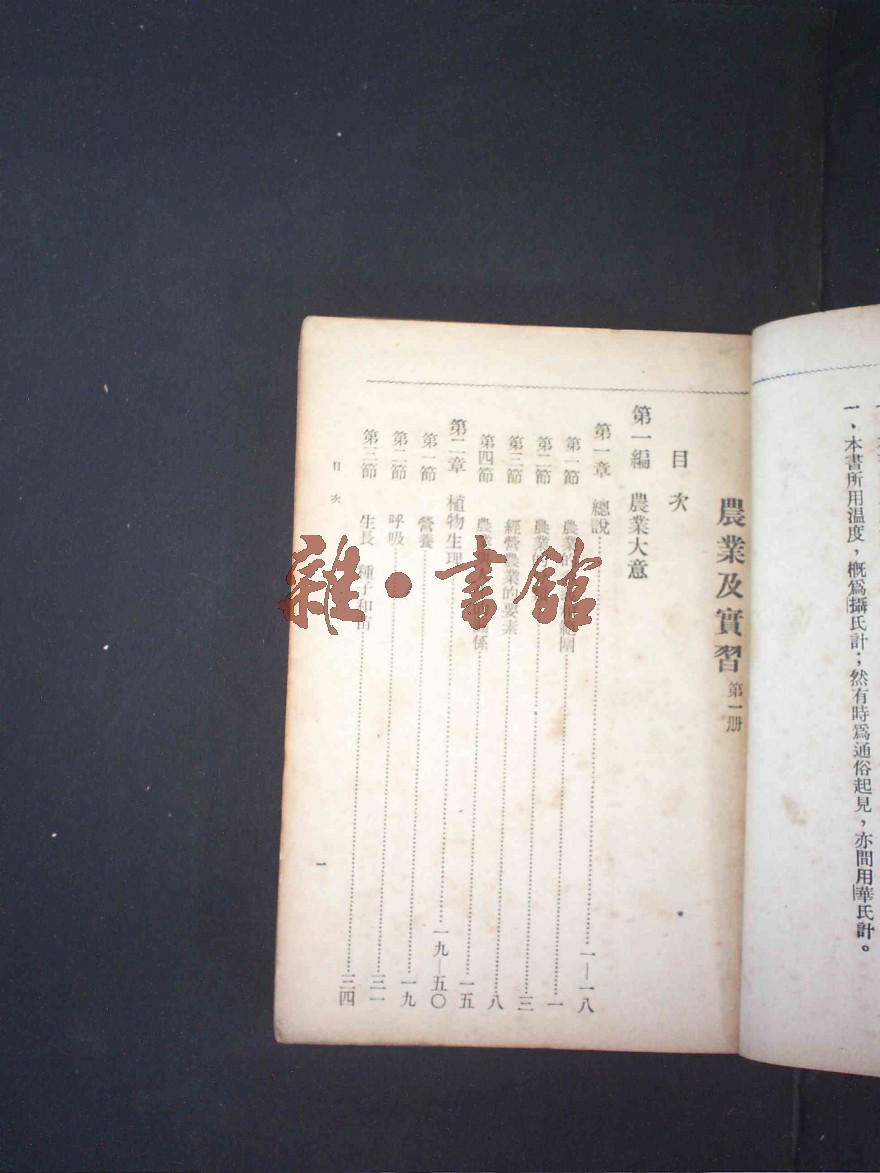 一、本書所用温度，概爲攝氏計；然有時爲通俗起見，亦間用華氏計。
農業及實習 第一册
目次
第一編 農業大意
第一章 總說 一—一八
第一節 農業的 範圍 一
第二節 農業的 三
第三節 經營農業的要素 八
第四節 農業 關係 一五
第二章 植物生理 一九—五〇
第一節 營養 一九
第二節 呼吸 三一
第三節 生長 種子和苗 三四
目次
一
雜·書館